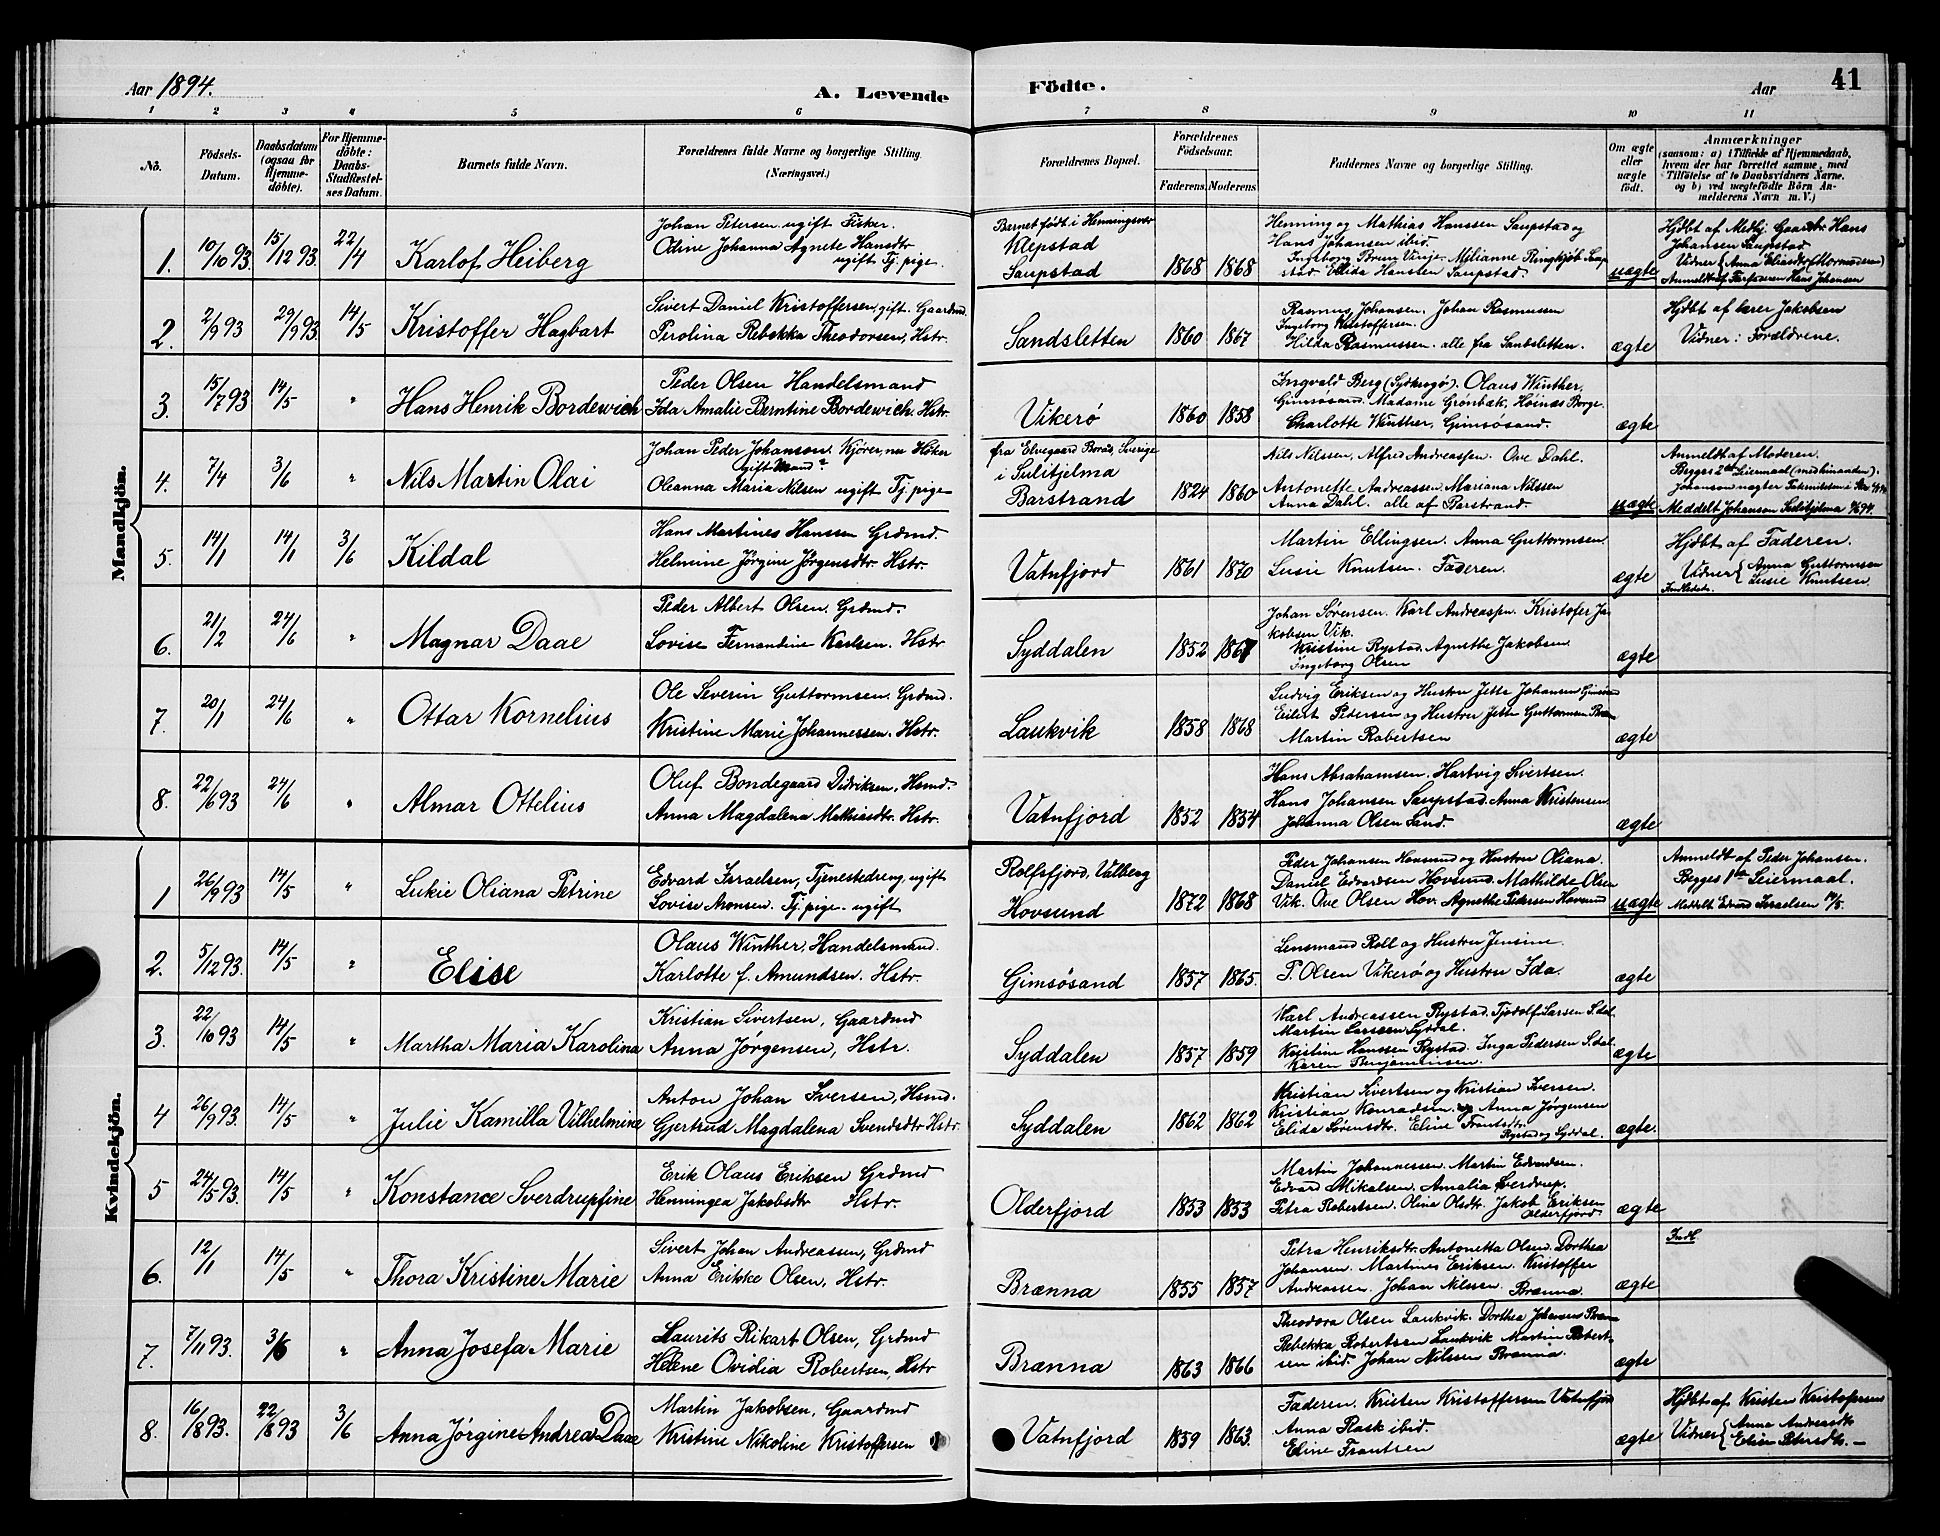 Aar 1894.
A. Levende
Födte.
Aar
41
1 2 3 4 5 6 7 8 9 10 11
No.
Födsels-Datum.
Daabsdatum (ogsaa for Hjemme-döbte).
For Hjemme-döbte: Daabs-Stadfæstel-ses Datum.
Barnets fulde Navn.
Forældrenes fulde Navne og borgerlige Stilling.
(Næringsvei.)
Forældrenes Bopæl.
Forældrenes Födselsaar.
Faderens. Moderens.
Faddernes Navne og borgerlige Stilling.
Om ægte eller uægte födt.
Anmærkninger
(saasom: a) i Tilfælde af Hjemmedaab,
hvem der har forrettet samme, med
Tilföielse af to Daabsvidners Navne,
og b) ved uægtefödte Börn An-
melderens Navn m. V.)
Mandkjön.
1. 10/10 93. 15/12 93. 22/4 Karlof Heiberg
Johan Petersen ugift Fisker.
Odine Johanna Agnete Hansdtr
ugift Tj. pige
Barnet født i Henningsvær
Klepstad
Saupstad 1868 1868
Henning og Mathias Hanssen Saupstad og
Hans Johansen ibid.
Ingeborg Brun Vinje. Milianne Ringkjøb Saup
stad Ellida Hansten Saupstad.
uægte
Hjdbt af Medhj. Gaardbr Hans
Johansen Saupstad
Vidner Anna Eliasdtr (Mormoderen)
Anmeldt af Farfaderen Hans Johansen
2. 2/9 93 29/9 93. 14/5 Kristoffer Hagbart
Sivert Daniel Kristoffersen, gift. Gaardmd.
Perolina Rebekka Theodorsen, Hstr.
Sandsletten 1860 1867
Rasmus Johansen. Johan Rasmussen
Ingeborg Kristoffersen.
Hilda Rasmussen. alle fra Sandsletten.
ægte
Hjdbt af Lærer Jakobsen
Vidner: Forældrene.
3. 15/7 93 14/5 " Hans Henrik Bordewich
Peder Olsen Handelsmand
Ida Amalie Berntine Bordewich. Hstr.
Vikerø 1860 1858
Ingvald Berg (Sydkregø). Olaus Winther,
Gimsøsand. Madame Grønbæk, Høinæs Borge.
Charlotte Winther, Gimsøsand.
ægte
4. 7/4 3/6 " Nils Martin Olai
Johan Peder Johanson. Kjører, nu Høker
gift Mand?
Oleanna Maria Nilsen ugift Tj. pige
fra Elvegaard Borås, Sverige
i Sulitjelma
Barstrand 1824 1860
Nils Nilssen, Alfred Andreassen. Ove Dahl.
Antonette Andreassen. Mariana Nilssen
Anna Dahl. alle af Barstrand.
uægte
Anmeldt af Moderen.
Begges 2det Leiermaal
Meddelt Johanson Sulitjelma 9/6 94.
5. 14/1 14/1 3/6 Kildal
Hans Martines Hanssen Grdmd.
Helmine Jørgine Jørgensdtr. Hstr.
Vatnfjord 1861 1870
Martin Ellingsen. Anna Guttormsen.
Lusie Knutsen. Faderen.
ægte
Hjdbt af Faderen.
Vidner Anna Guttormsen
Lusie Knutsen.
Indledets.
6. 21/2 24/6 " Magnar Daae
Peder Albert Olsen. Grdmd.
Lovise Fernandine Karlsen. Hstr
Syddalen 1852 1867
Johan Sørensen. Karl Andreassen. Kristofer Ja
kobsen Vik.
Kristine Rystad. Agnethe Jakobsen
Ingeborg Olsen
ægte
7. 20/1 24/6 " Ottar Kornelius
Ole Severin Guttormsen. Grdmd.
Kristine Marie Johannessen. Hstr.
Laukvik 1858 1868
Ludvig Eriksen og Hustru Jette Johansen
Eilert Pedersen og Hustru Jette Guttormsen
Martin Robertsen
ægte
8. 22/6 93 24/6 " Almar Ottelius
Oluf Bondegaard Didriksen, Hsmd.
Anna Magdalena Mathiasdtr. Hstr.
Vatnfjord 1852 1854
Hans Abrahamsen. Hartvig Sivertsen.
Hans Johansen Saupstad. Anna Kristensen.
Johanna Olsen Sand.
ægte
Kvindekjön.
1 26/9 93 14/5 " Lukie Oliana Petrine
Edvard Israelsen, Tjenestedreng, ugift
Lovise Aronsen. Tj. pige. ugift
Rolfsfjord, Valberg
Hovsund 1872 1868
Peder Johansen Hovsund og Hustru Oliana.
Daniel Edvardsen Hovsund. Mathilde Olsen
Vik. Ove Olsen Hov. Agnethe Petersen Hovsund
uægte
Anmeldt af Peder Johansen.
Begges 1ste Leiermaal.
Meddelt Edvard Israelsen
2. 5/12 93. 14/5 " Elise
Olaus Winther, Handelsmand.
Karlotte f. Amundsen. Hstr.
Gimsøsand 1857 1865.
Lensmand Roll og Hustru Jensine.
P. Olsen Vikerø og Hustru Ida.
ægte
3. 22/10 93 14/5 " Martha Maria Karolina
Kristian Sivertsen, Gaardmd
Anna Jørgensen, Hstr.
Syddalen 1857 1859
Karl Andreassen Rystad. Tjodolf Larsen S.dal.
Martin Larssen Syddal.
Kristine Hanssen Rystad. Inga Pedersen S.dal
Karen Benjaminsen.
ægte
4 26/9 93. 14/5 " Julie Kamilla Vilhelmine
Anton Johan Iversen, Hsmd.
Gjertrud Magdalena Svendsdtr Hstr.
Syddalen 1862 1862
Kristian Sivertsen og Kristian Iversen.
Kristian Konradsen. og Anna Jørgensen
Elida Sørensdtr. Eline Frantsdtr.
Rystad og Syddal.
ægte.
5 24/5 93. 14/5 " Konstance Sverdrupfine
Erik Olaus Eriksen Grdmd
Henningea Jakobsdtr Hstr.
Olderfjord 1853 1853
Martin Johannessen. Martin Edvardsen.
Edvard Mikalsen. Amalia Sverdrup.
Petra Robertsen. Olina Olsdtr. Jakob Eriksen
Olderfjord.
ægte
6. 12/1 14/5 " Thora Kristine Marie
Sivert Johan Andreassen, Grdmd
Anna Erikke Olsen, Hstr.
Brænna 1855 1857
Petra Henriksdtr. Antonetta Olsen. Dorthea
Johansen. Martines Eriksen. Kristoffer
Andreassen. Johan Nilssen. Brænna.
ægte
Indl.
7. 7/11 93. 3/6 " Anna Josefa Marie
Laurits Rikart Olsen, Grdmd
Helene Ovidia Robertsen, Hstr
Brænna 1863 1866
Theodora Olsen Laukvik. Dorthea Johansens Bræn
Rebekka Robertssen Laukvik Martin Robert-
sen ibid. Johan Nilssen Brænna.
ægte
8. 16/8 93. 22/8 93 3/6 Anna Jørgine Andrea Daae
Martin Jakobsen, Gaardmd
Kristine Nikoline Kristoffersen
Vatnfjord 1859 1863.
Faderen. Kristen Kristoffersen Vatnfjord
Anna Rask ibid.
Eline Frantsen
ægte
Hjdbt af Kristen Kristofersen
Vidner Anna Andersdtr
Elise Petersdtr. –